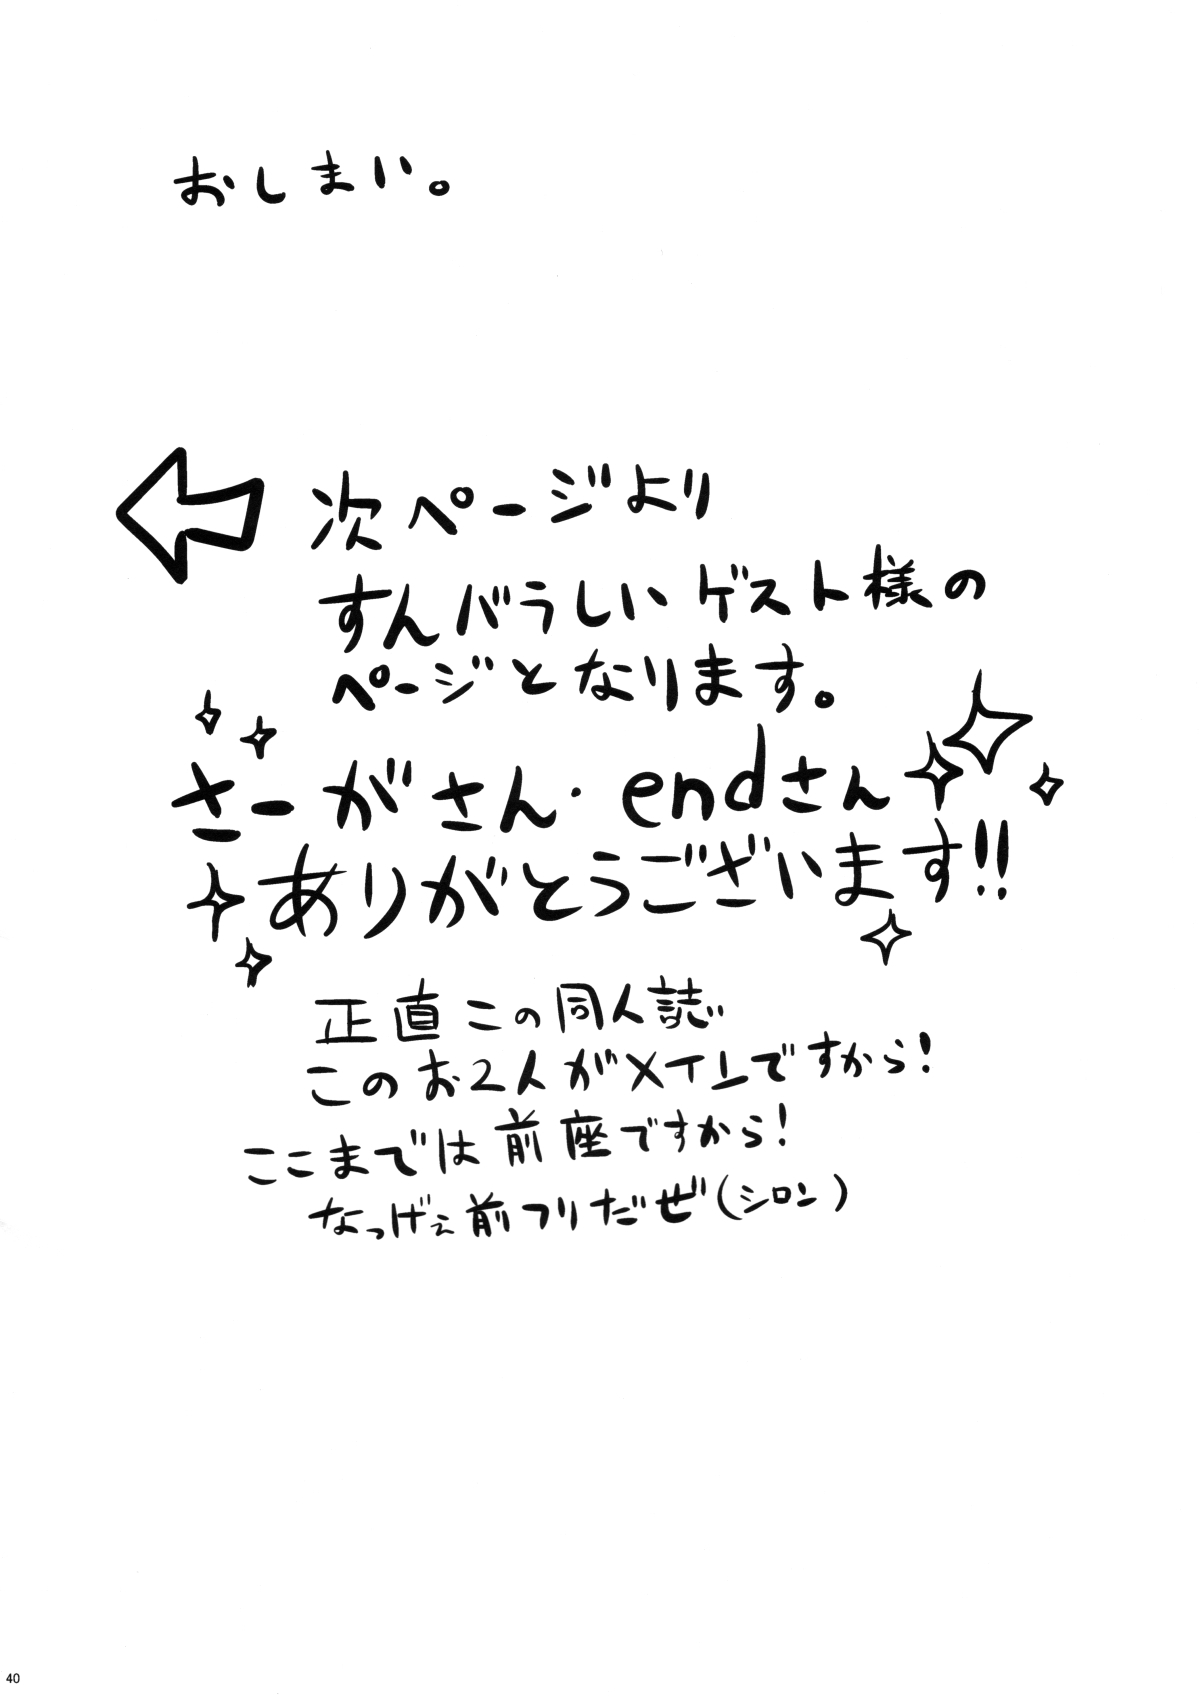 おしまい。
次ページより
すんバらしいゲスト様の
ページとなります。
さーがさん・endさん
ありがとうございます!!
正直この同人誌
このお2人がメインですから!
ここまでは前座ですから!
なっげぇ前フリだぜ(シロン)
40